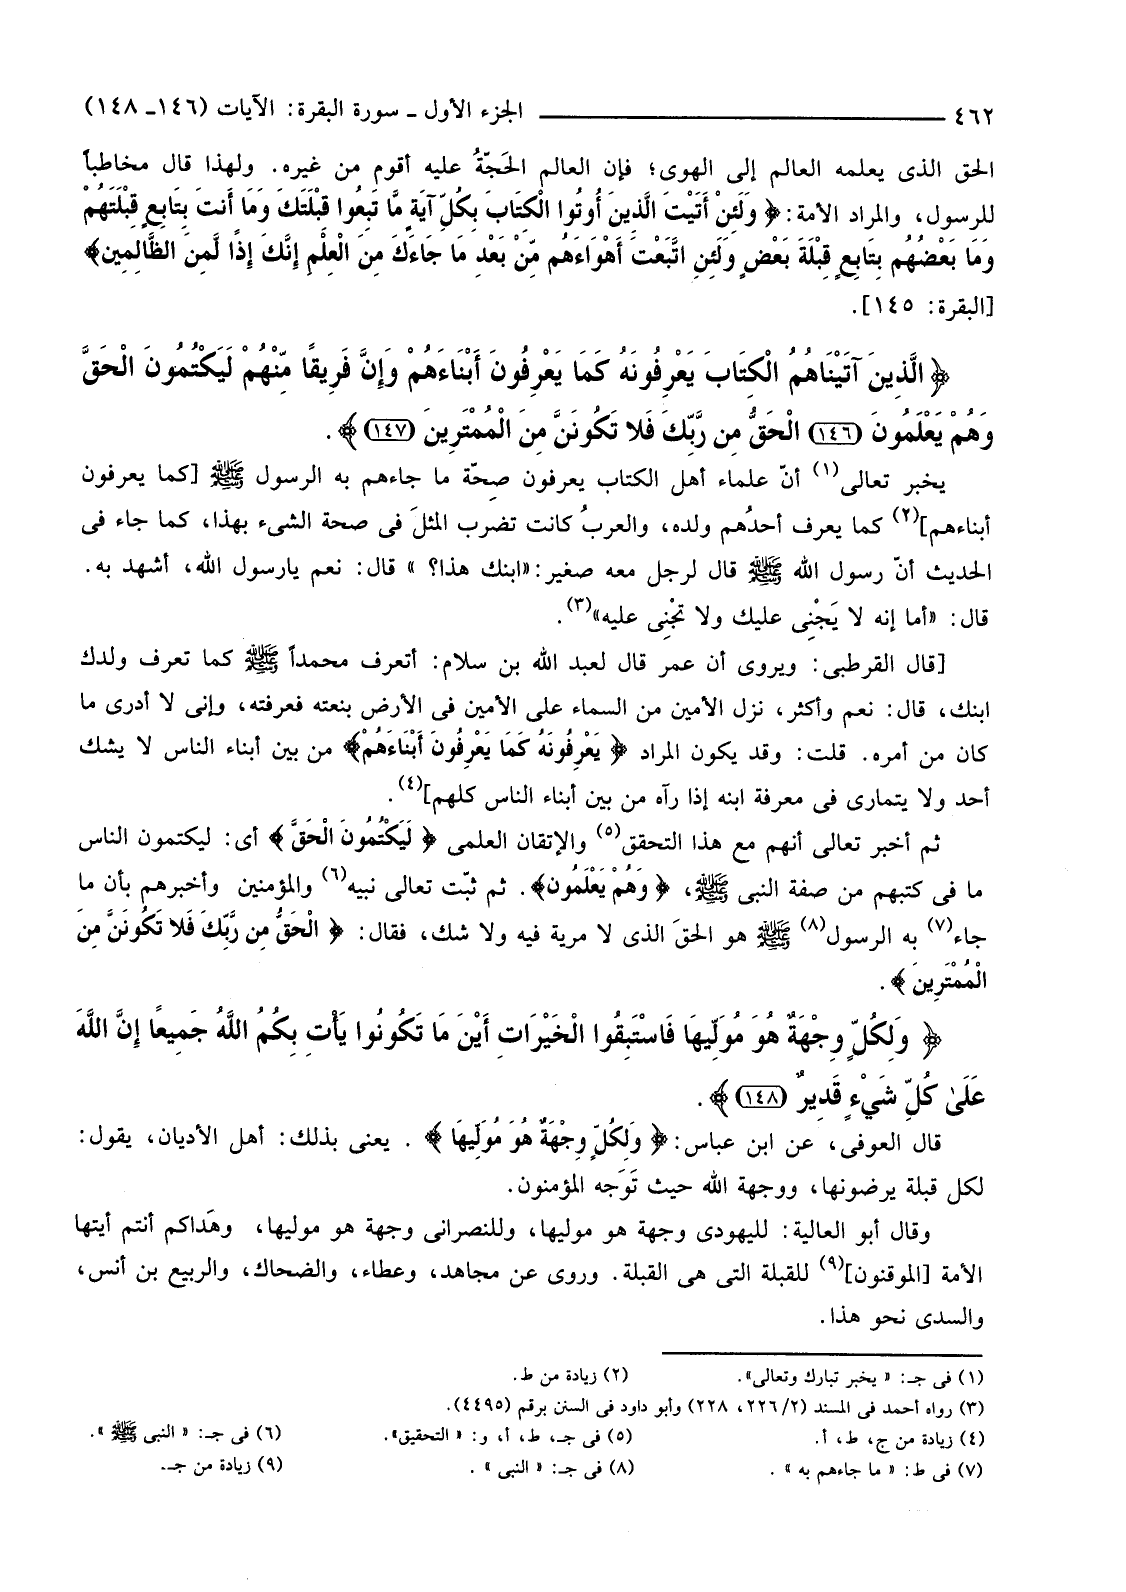 ٤٦٢ ـــــــــــــــــــــــــــــــــ الجزء الأول ـ سورة البقرة: الآيات (١٤٦ـ ١٤٨)
الحق الذى يعلمه العالم إلى الهوى؛ فإن العالم الحَجّةُ عليه أقوم من غيره. ولهذا قال مخاطباً
للرسول، والمراد الأمة: ﴿ وَلَئِنْ أَتَيْتَ الَّذِينَ أُوتُوا الْكِتَابَ بِكُلِّ آيَةٍ مَّا تَبِعُوا قِبْلَتَكَ وَمَا أَنتَ بِتَابِعٍ قِبْلَتَهُمْ
وَمَا بَعْضُهُم بِتَابِعٍ قِبْلَةَ بَعْضٍ وَلَئِنِ اتَّبَعْتَ أَهْوَاءَهُم مِّنْ بَعْدِ مَا جَاءَكَ مِنَ الْعِلْمِ إِنَّكَ إِذًا لَّمِنَ الظَّالِمِين﴾
[البقرة: ١٤٥].
﴿ الَّذِينَ آتَيْنَاهُمُ الْكِتَابَ يَعْرِفُونَهُ كَمَا يَعْرِفُونَ أَبْنَاءَهُمْ وَإِنَّ فَرِيقًا مِّنْهُمْ لَيَكْتُمُونَ الْحَقَّ
وَهُمْ يَعْلَمُونَ (١٤٦) الْحَقُّ مِن رَّبِّكَ فَلا تَكُونَنَّ مِنَ الْمُمْتَرِينَ (١٤٧) ﴾ .
يخبر تعالى(١) أنّ علماء أهل الكتاب يعرفون صِحّة ما جاءهم به الرسول ﷺ [كما يعرفون
أبناءهم](٢) كما يعرف أحدُهم ولده، والعربُ كانت تضرب المثلَ فى صحة الشىء بهذا، كما جاء فى
الحديث أنّ رسول الله ﷺ قال لرجل معه صغير: «ابنك هذا؟ » قال: نعم يارسول الله، أشهد به.
قال: «أما إنه لا يَجْنِى عليك ولا تجْنِى عليه»(٣).
[قال القرطبى: ويروى أن عمر قال لعبد الله بن سلام: أتعرف محمداً ﷺ كما تعرف ولدك
ابنك، قال: نعم وأكثر، نزل الأمين من السماء على الأمين فى الأرض بنعته فعرفته، وإنى لا أدرى ما
كان من أمره. قلت: وقد يكون المراد ﴿ يَعْرِفُونَهُ كَمَا يَعْرِفُونَ أَبْنَاءَهُمْ﴾ من بين أبناء الناس لا يشك
أحد ولا يتمارى فى معرفة ابنه إذا رآه من بين أبناء الناس كلهم](٤).
ثم أخبر تعالى أنهم مع هذا التحقق(٥) والإتقان العلمى ﴿ لَيَكْتُمُونَ الْحَقَّ ﴾ أى: ليكتمون الناس
ما فى كتبهم من صفة النبى ﷺ، ﴿ وَهُمْ يَعْلَمُون﴾. ثم ثبّت تعالى نبيه(٦) والمؤمنين وأخبرهم بأن ما
جاء(٧) به الرسول(٨) ﷺ هو الحقَ الذى لا مرية فيه ولا شك، فقال: ﴿ الْحَقُّ مِن رَّبِّكَ فَلا تَكُونَنَّ مِنَ
الْمُمْتَرِينَ ﴾ .
﴿ وَلِكُلٍّ وِجْهَةٌ هُوَ مُوَلِّيهَا فَاسْتَبِقُوا الْخَيْرَاتِ أَيْنَ مَا تَكُونُوا يَأْتِ بِكُمُ اللَّهُ جَمِيعًا إِنَّ اللَّهَ
عَلَىٰ كُلِّ شَيْءٍ قَدِيرٌ (١٤٨) ﴾ .
قال العوفى، عن ابن عباس: ﴿ وَلِكُلٍّ وِجْهَةٌ هُوَ مُوَلِّيهَا ﴾ . يعنى بذلك: أهل الأديان، يقول:
لكل قبلة يرضونها، ووجهة الله حيث تَوَجه المؤمنون.
وقال أبو العالية: لليهودى وجهة هو موليها، وللنصرانى وجهة هو موليها، وهَداكم أنتم أيتها
الأمة [الموقنون](٩) للقبلة التى هى القبلة. وروى عن مجاهد، وعطاء، والضحاك، والربيع بن أنس،
والسدى نحو هذا.
(١) فى جـ: « يخبر تبارك وتعالى». (٢) زيادة من ط.
(٣) رواه أحمد فى المسند (٢/ ٢٢٦، ٢٢٨) وأبو داود فى السنن برقم (٤٤٩٥).
(٤) زيادة من ج، ط، أ. (٥) فى جـ، ط، أ، و: « التحقيق». (٦) فى جـ: « النبى ﷺ ».
(٧) فى ط: « ما جاءهم به » . (٨) فى جـ: « النبى » . (٩) زيادة من جـ.